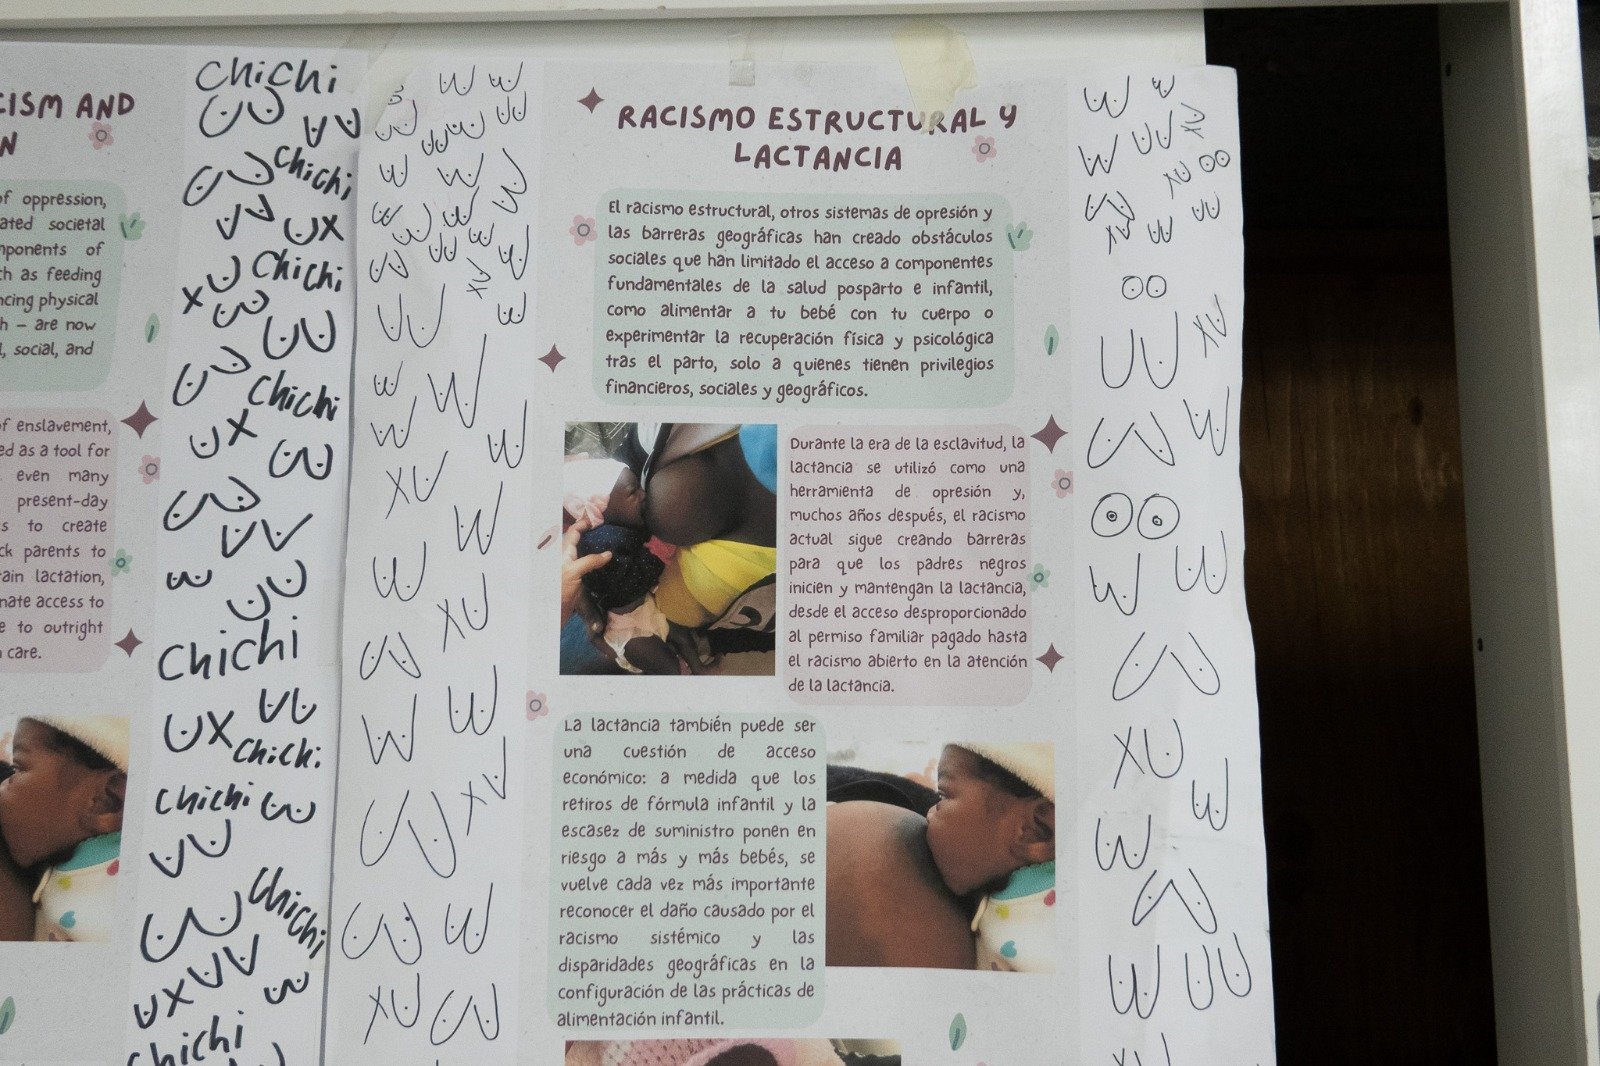 CISM AND
N
of oppression,
ated societal
mponents of
ch as feeding
ncing physical
h – are now
l, social, and
of enslavement,
ed as a tool for
even many
present-day
s to create
ck parents to
rain lactation,
nate access to
e to outright
care.
Chichi
Chichi
Chichi
Chichi
Chichi
Chichi
Chichi
Chichi
Chichi
RACISMO ESTRUCTURAL Y
LACTANCIA
El racismo estructural, otros sistemas de opresión y
las barreras geográficas han creado obstáculos
sociales que han limitado el acceso a componentes
fundamentales de la salud posparto e infantil,
como alimentar a tu bebé con tu cuerpo o
experimentar la recuperación física y psicológica
tras el parto, solo a quienes tienen privilegios
financieros, sociales y geográficos.
Durante la era de la esclavitud, la
lactancia se utilizó como una
herramienta de opresión y,
muchos años después, el racismo
actual sigue creando barreras
para que los padres negros
inicien y mantengan la lactancia,
desde el acceso desproporcionado
al permiso familiar pagado hasta
el racismo abierto en la atención
de la lactancia.
La lactancia también puede ser
una cuestión de acceso
económico: a medida que los
retiros de fórmula infantil y la
escasez de suministro ponen en
riesgo a más y más bebés, se
vuelve cada vez más importante
reconocer el daño causado por el
racismo sistémico y las
disparidades geográficas en la
configuración de las prácticas de
alimentación infantil.